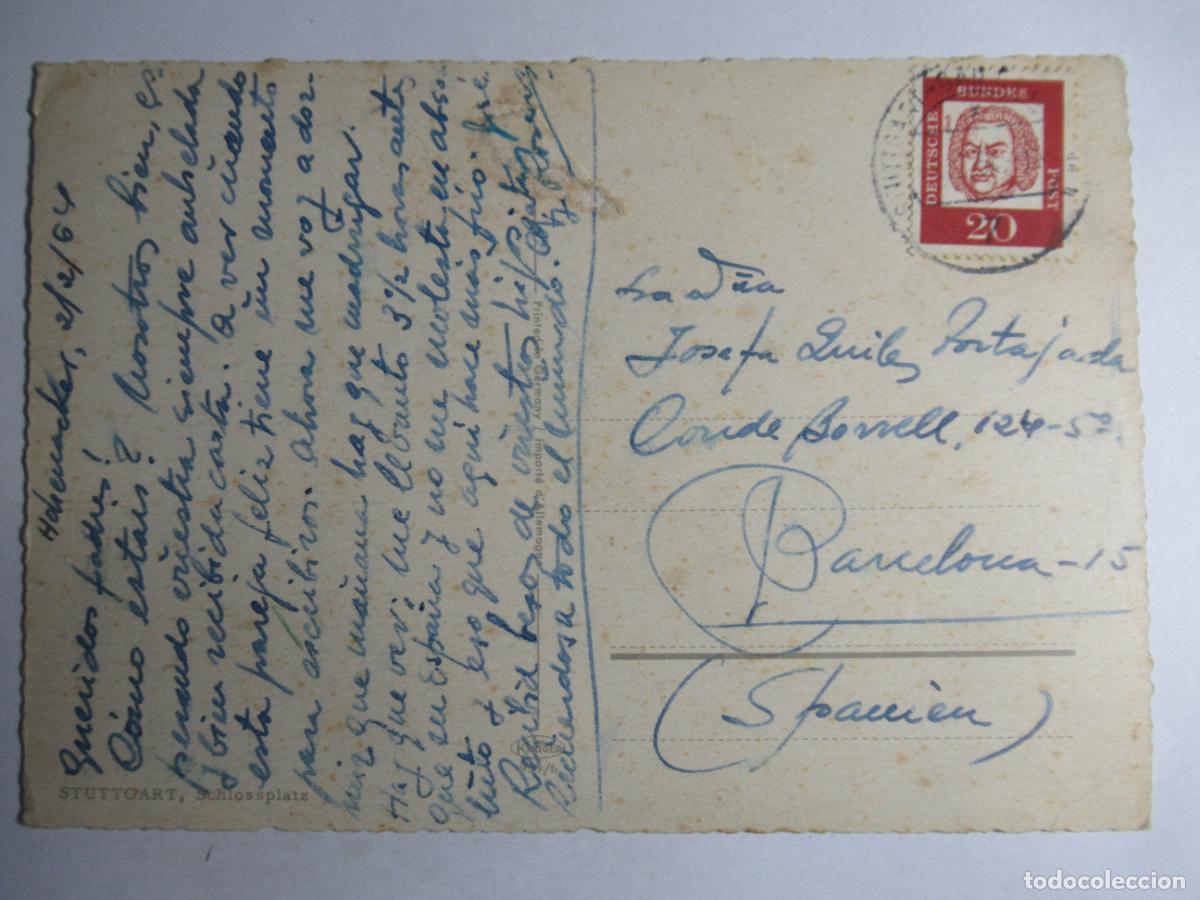 Hohenacker, 2/2/64
Queridos padres!
Cómo estáis? Nosotros bien, es-
perando vuestra siempre anhelada
y bien recibida carta. A ver cuándo
esta pareja feliz tiene un momento
para escribiros. Ahora me voy a dor-
mir que mañana hay que madrugar.
Hay que ver! me levanto 3 1/2 horas antes
que en España y no me molesta en abso-
luto y eso que aquí hace más frío
Recibid besos de vuestros hijos
Recuerdos a todo el mundo.
STUTTGART, Schlossplatz
Printed in Germany / Importé d'Allemagne
DEUTSCHE BUNDESPOST
20
Josefa Quiles Portajada
Conde Borrell, 124-5º
Barcelona-15
(Spanien)
todocoleccion